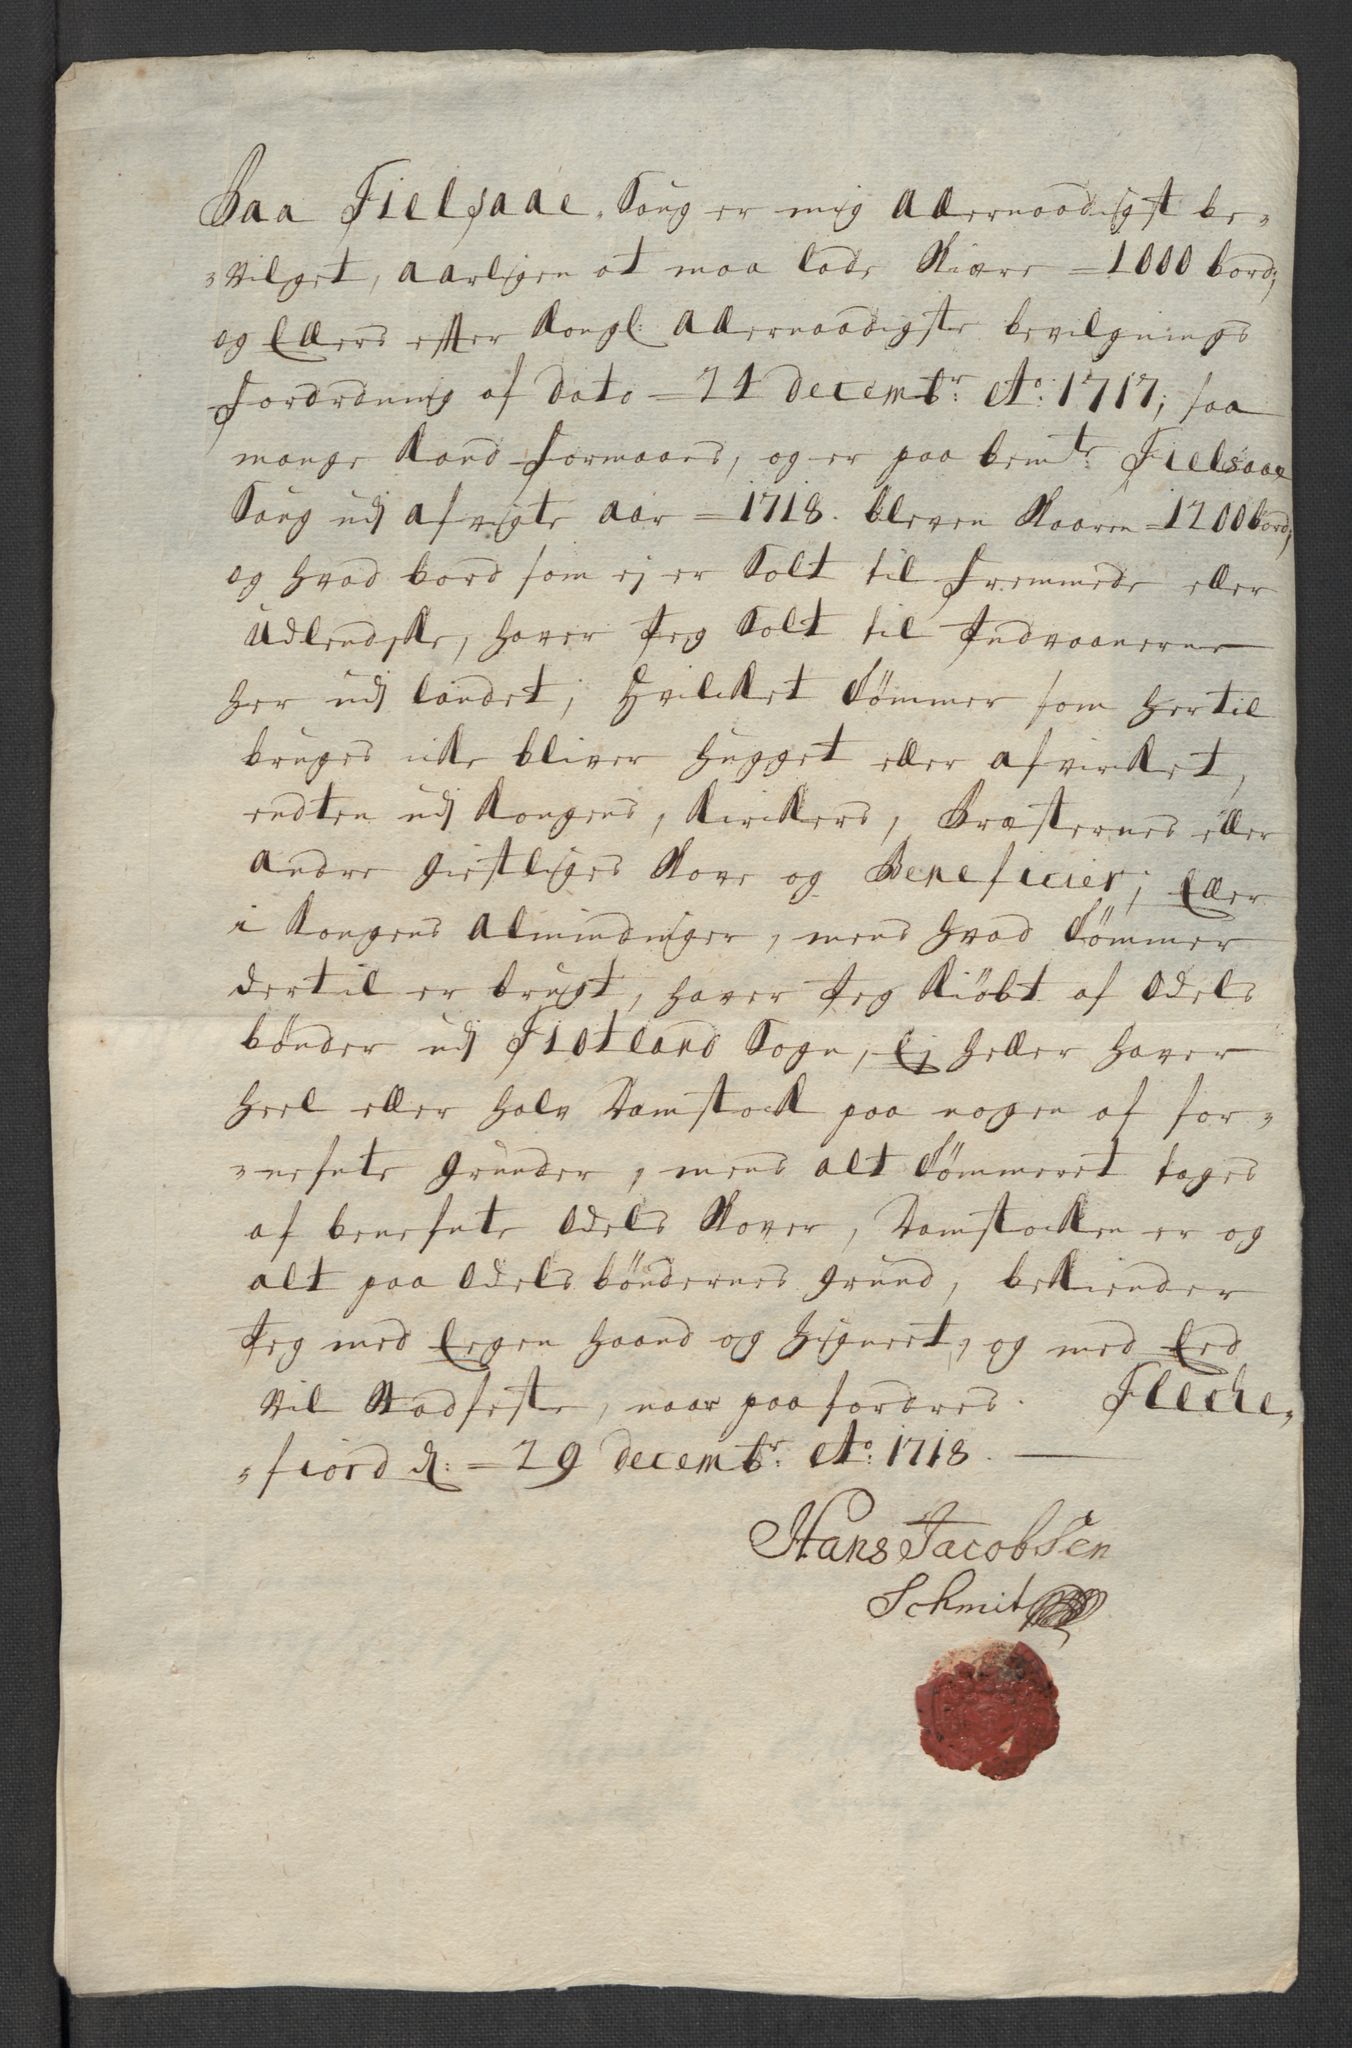 Paa Fielsaae Saug er mig Allernaadigst be-
-vilget, aarligen at maa lade Skiære = 1000 bord;
og Ellers efter Kongl: Allernaadigste bevilgnings
Forordning af dato = 24 decembr: Ao: 1717, saa
mange Kand formaaes, og er paa bemte: Fielsaae
Saug udj afvigte aar = 1718. bleven Skaaren = 1200 bord;
og hvad bord som ej er Solt til fremmede eller
Udlendske, haver Jeg Solt til Indvaanerne
her udj landet; Hvilcket Tømmer som hertil
bruges icke bliver hugget eller afvircket,
endten udj Kongens, Kirckers, Præsternes eller
andre giestliges Skove og Beneficier; Eller
i Kongens Almindinger, mens hvad Tømmer
dertil er brugt, haver Jeg Kiøbt af Odels
bønder udj Fiotland Sogn, Ej heller haver
heel eller halv Damstock paa nogen af for-
-nefnte grunder, mens alt Tømmeret tages
af benefnte Odels Skover, Damstocken er og
alt paa Odels bøndernes grund, bekiender
Jeg med Egen haand og Signert, og med Eed
vil Stadfeste, naar paa fordres. Flecke-
-fiord d: = 29 decembr: Ao: 1718.
Hans Jacobsen
Schmit